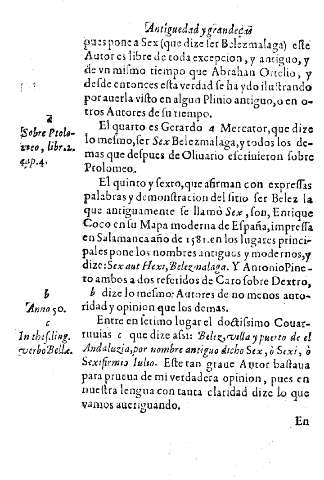 Antiguedad y grandeças
pues pone a Sex (que dize ser Belezmalaga) este
Autor es libre de toda excepcion, y antiguo, y
de vn mismo tiempo que Abrahan Ortelio, y
desde entonces esta verdad se ha ydo ilustrando
por auerla visto en algun Plinio antiguo, o en o-
tros Autores de su tiempo.
El quarto es Gerardo a Mercator, que dize
lo mesmo, ser Sex Belezmalaga, y todos los de-
mas que despues de Oliuario escriuieron sobre
Ptolomeo.
a
Sobre Ptolo-
meo, libr. 2.
cap. 4.
El quinto y sexto, que afirman con expressas
palabras y demonstracion del sitio ser Belez la
que antiguamente se llamò Sex, son, Enrique
Coco en su Mapa moderna de España, impressa
en Salamanca año de 1581. en los lugares princi-
pales pone los nombres antiguos y modernos, y
dize: Sex aut Hexi, Belezmalaga. Y Antonio Pine-
to ambos a dos referidos de Caro sobre Dextro,
b dize lo mesmo: Autores de no menos auto-
ridad y opinion que los demas.
b
Anno 50.
Entre en setimo lugar el doctissimo Couar-
ruuias c que dize assi: Belez, villa y puerto del
Andaluzia, por nombre antiguo dicho Sex, ò Sexi, ò
Sexifirmio Iulio. Este tan graue Autor bastaua
para prueua de mi verdadera opinion, pues en
nuestra lengua con tanta claridad dize lo que
vamos aueriguando.
c
In thes. ling.
verbo Bellæ.
En